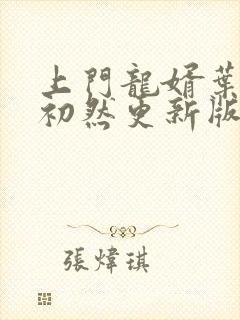 上門龍婿葉
初然更新版
張煒琪